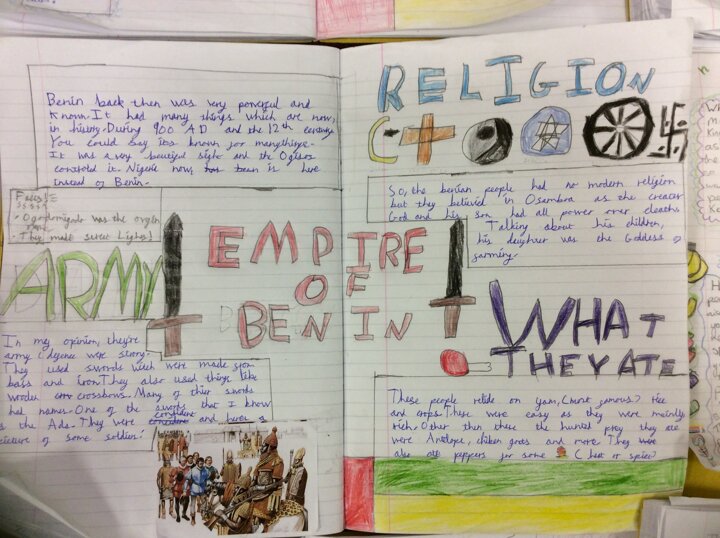 Benin back then was very powerful and
known. It had many things which are now,
in history. During 900 AD and the 12th century
You could say its known for manythings.
It was a very beautiful sight and the Ogisos
controlled it. Nigeria now, has been is here
instead of Benin.
Facts!
Ogodomigodo was the origin
name.
They made street Lights!
ARMY
In my opinion, they're
army/defence were strong.
They used swords which were made from
bass and iron. They also used things like
wooden crossbows. Many of thier swords
had names. One of the swords that I know
is the Ada. They were confident and here is
picture of some soldier!
EMPIRE
OF
BENIN
RELIGION
So, the benian people had no modern religion
but they believed in Osanbura as the creater
God and his son had all power over deaths
Talking about his children,
his daughter was the Goddess of
farming.
WHAT
THEY ATE
These people relide on yam, (most famous) rice
and crops. These were easy as they were mainly
rich. Other then these the hunted prey they ate
were Antelope, chiken goats and more. They
also ate peppers for some (heat or spice)